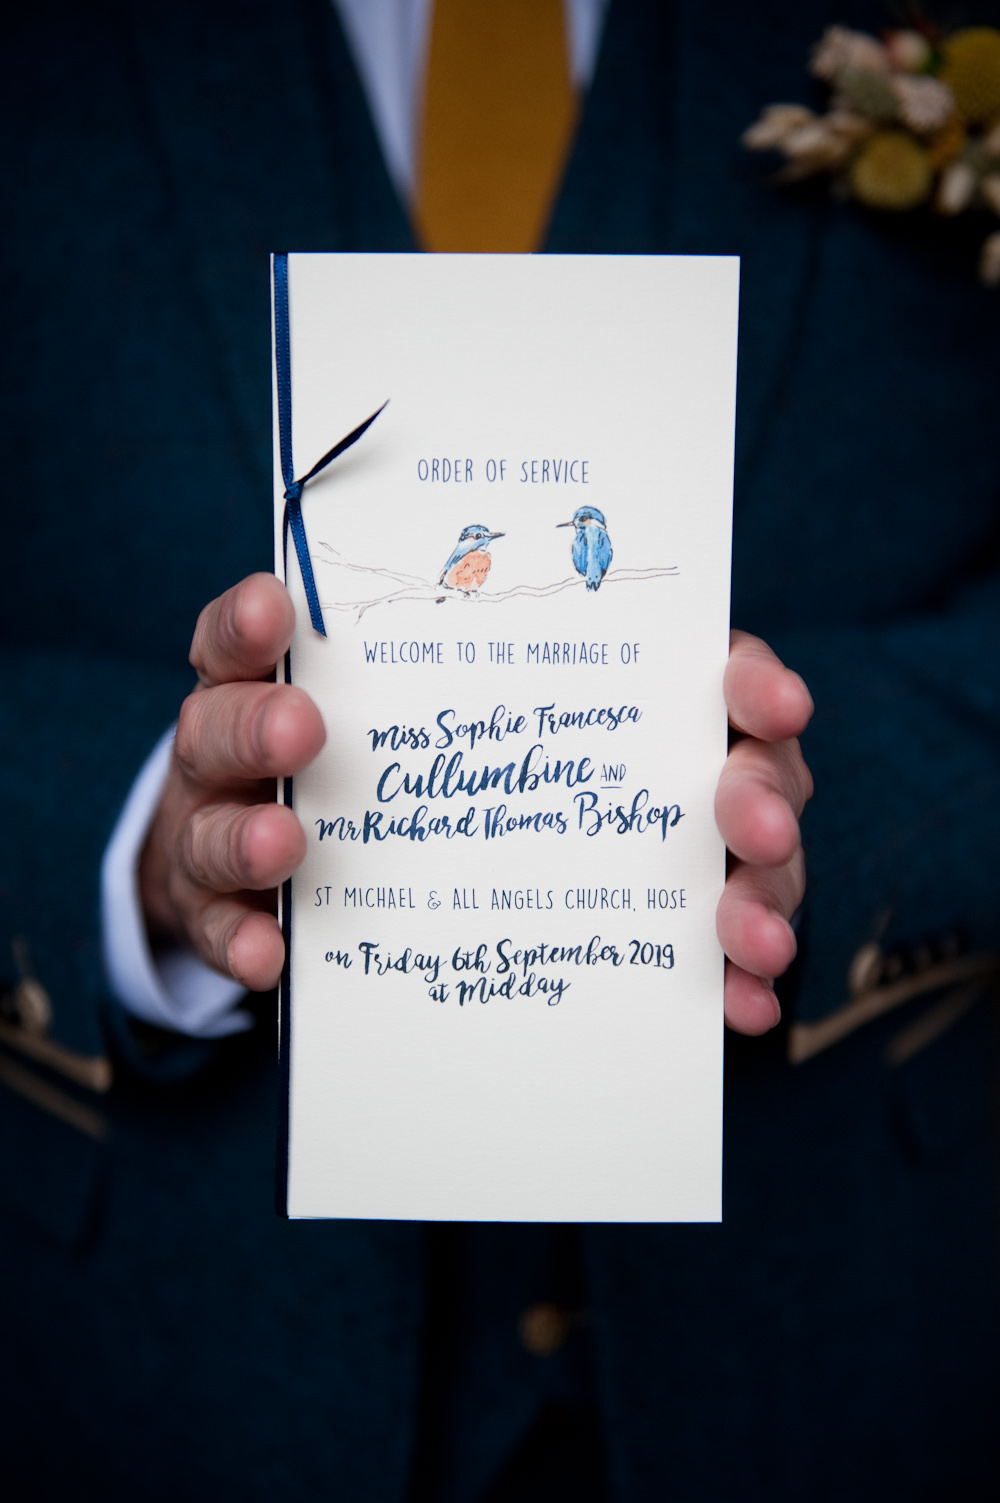 ORDER OF SERVICE
WELCOME TO THE MARRIAGE OF
Miss Sophie Francesca
Cullumbine AND
Mr Richard Thomas Bishop
ST MICHAEL & ALL ANGELS CHURCH, HOSE
on Friday 6th September 2019
at Midday